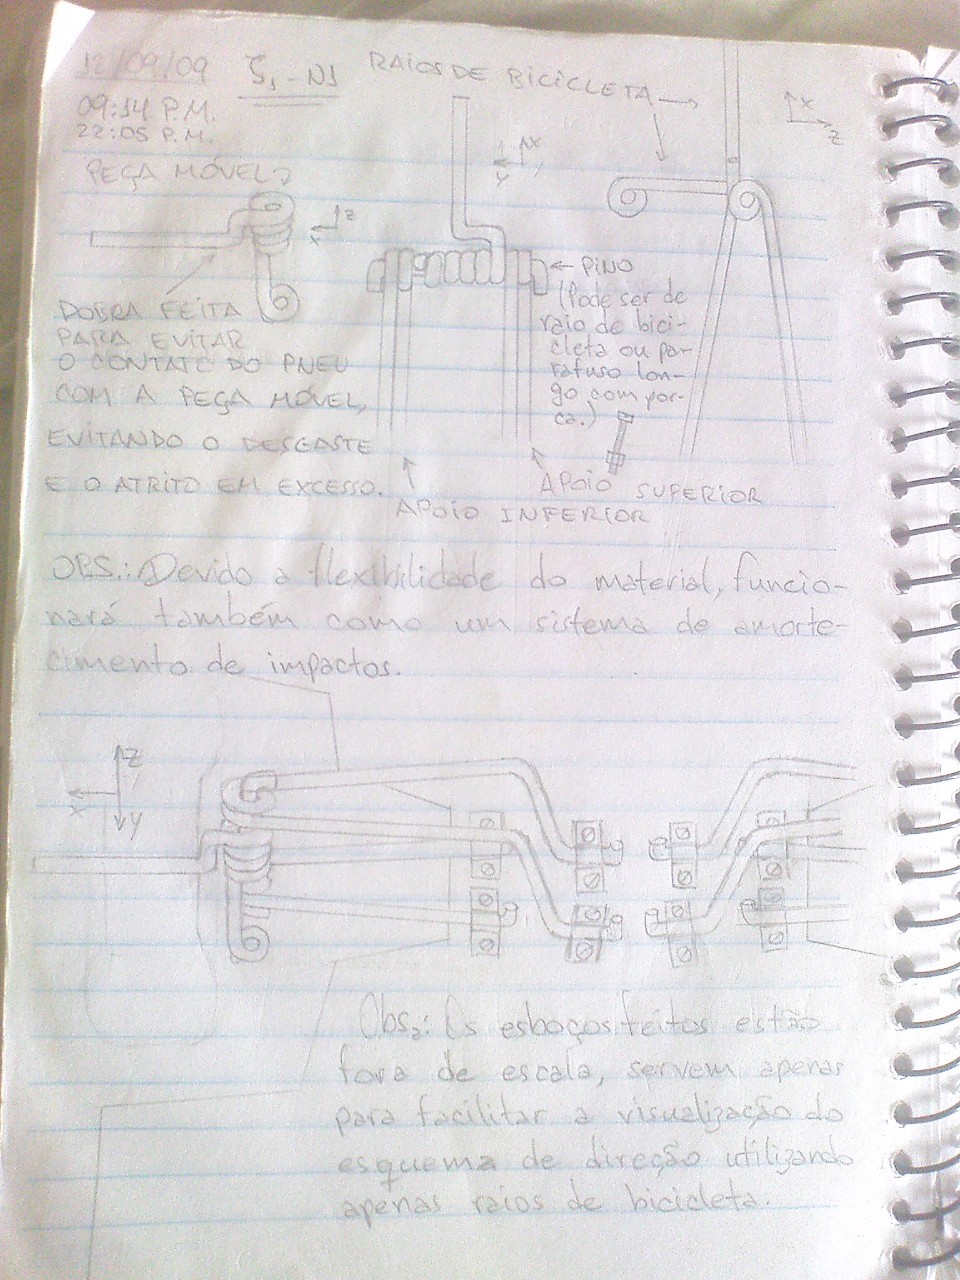 12/09/09
09:14 P.M.
22:05 P.M.
RAIOS DE BICICLETA
PEÇA MÓVEL
X
Z
X
Y
Z
X
DOBRA FEITA
PARA EVITAR
O CONTATO DO PNEU
COM A PEÇA MÓVEL,
EVITANDO O DESGASTE
E O ATRITO EM EXCESSO.
PINO
(Pode ser de
raio de bici-
cleta ou pa-
rafuso lon-
go com por-
ca.)
APOIO SUPERIOR
APOIO INFERIOR
OBS.: Devido a flexibilidade do material, funcio-
nará também como um sistema de amorte-
cimento de impactos.
Z
X
Y
Obs₂: Os esboços feitos estão
fora de escala, servem apenas
para facilitar a visualização do
esquema de direção utilizando
apenas raios de bicicleta.